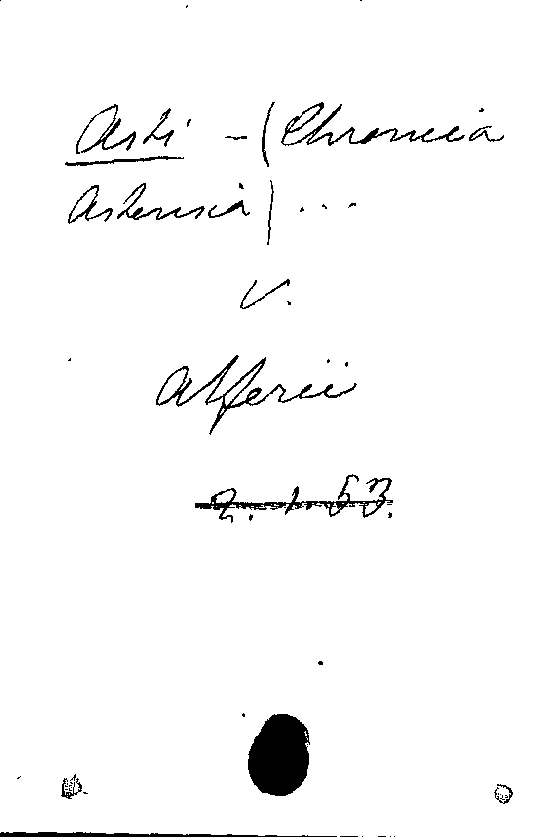 Asti - (Chronica
Astensia) ...
V.
Alferii
2. 1. 53.